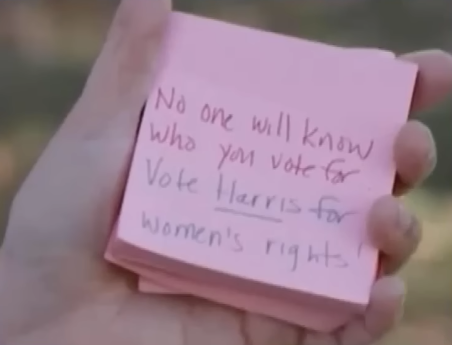 No one will know
who you vote for
Vote Harris for
women's rights!